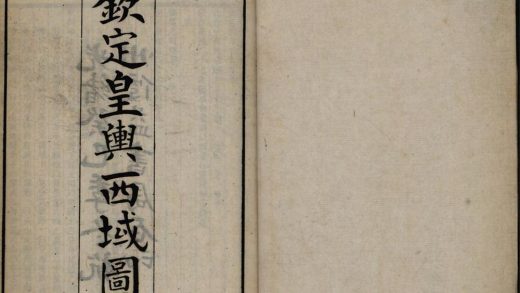 欽定皇輿西域圖